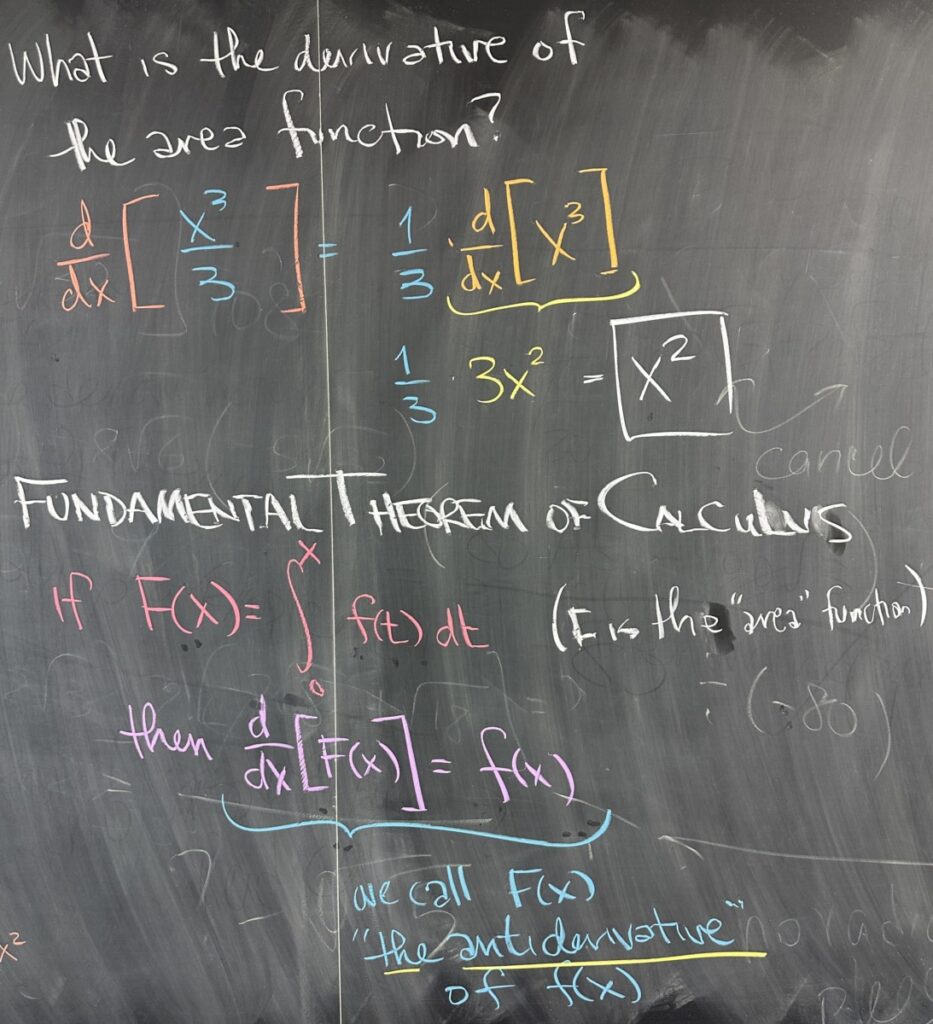 What is the derivative of
the area function?
d/dx [x³/3] = 1/3 · d/dx [x³]
1/3 · 3x² = x²
cancel
FUNDAMENTAL THEOREM OF CALCULUS
If F(x) = ∫₀ˣ f(t) dt (F is the "area" function)
then d/dx [F(x)] = f(x)
we call F(x)
"the antiderivative"
of f(x)
x²